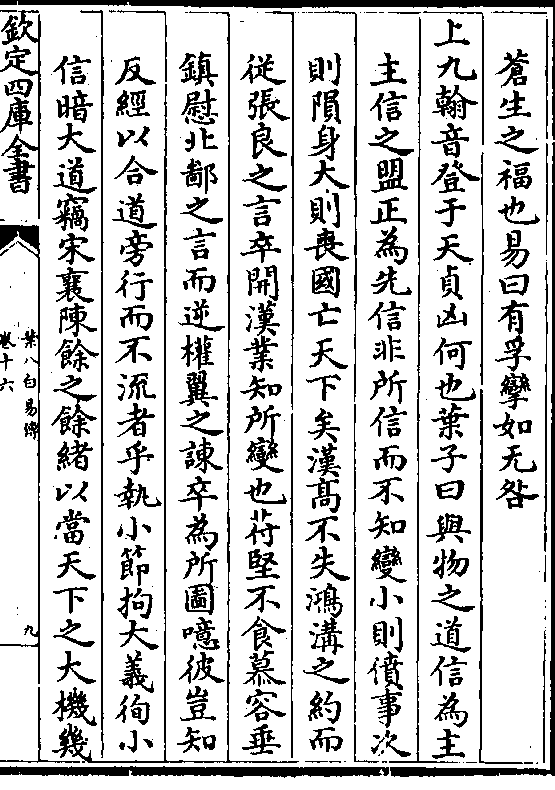 蒼生之福也易曰有孚攣如无咎
上九翰音登于天貞凶何也葉子曰與物之道信為主
主信之盟正為先信非所信而不知變小則僨事次
則隕身大則喪國亡天下矣漢高不失鴻溝之約而
從張良之言卒開漢業知所變也苻堅不食慕容垂
鎮慰北鄙之言而逆權翼之諫卒為所圖噫彼豈知
反經以合道旁行而不流者乎執小節拘大義徇小
信暗大道竊宋襄陳餘之餘緒以當天下之大機幾
欽定四庫全書
葉八白易傳
卷十六
九